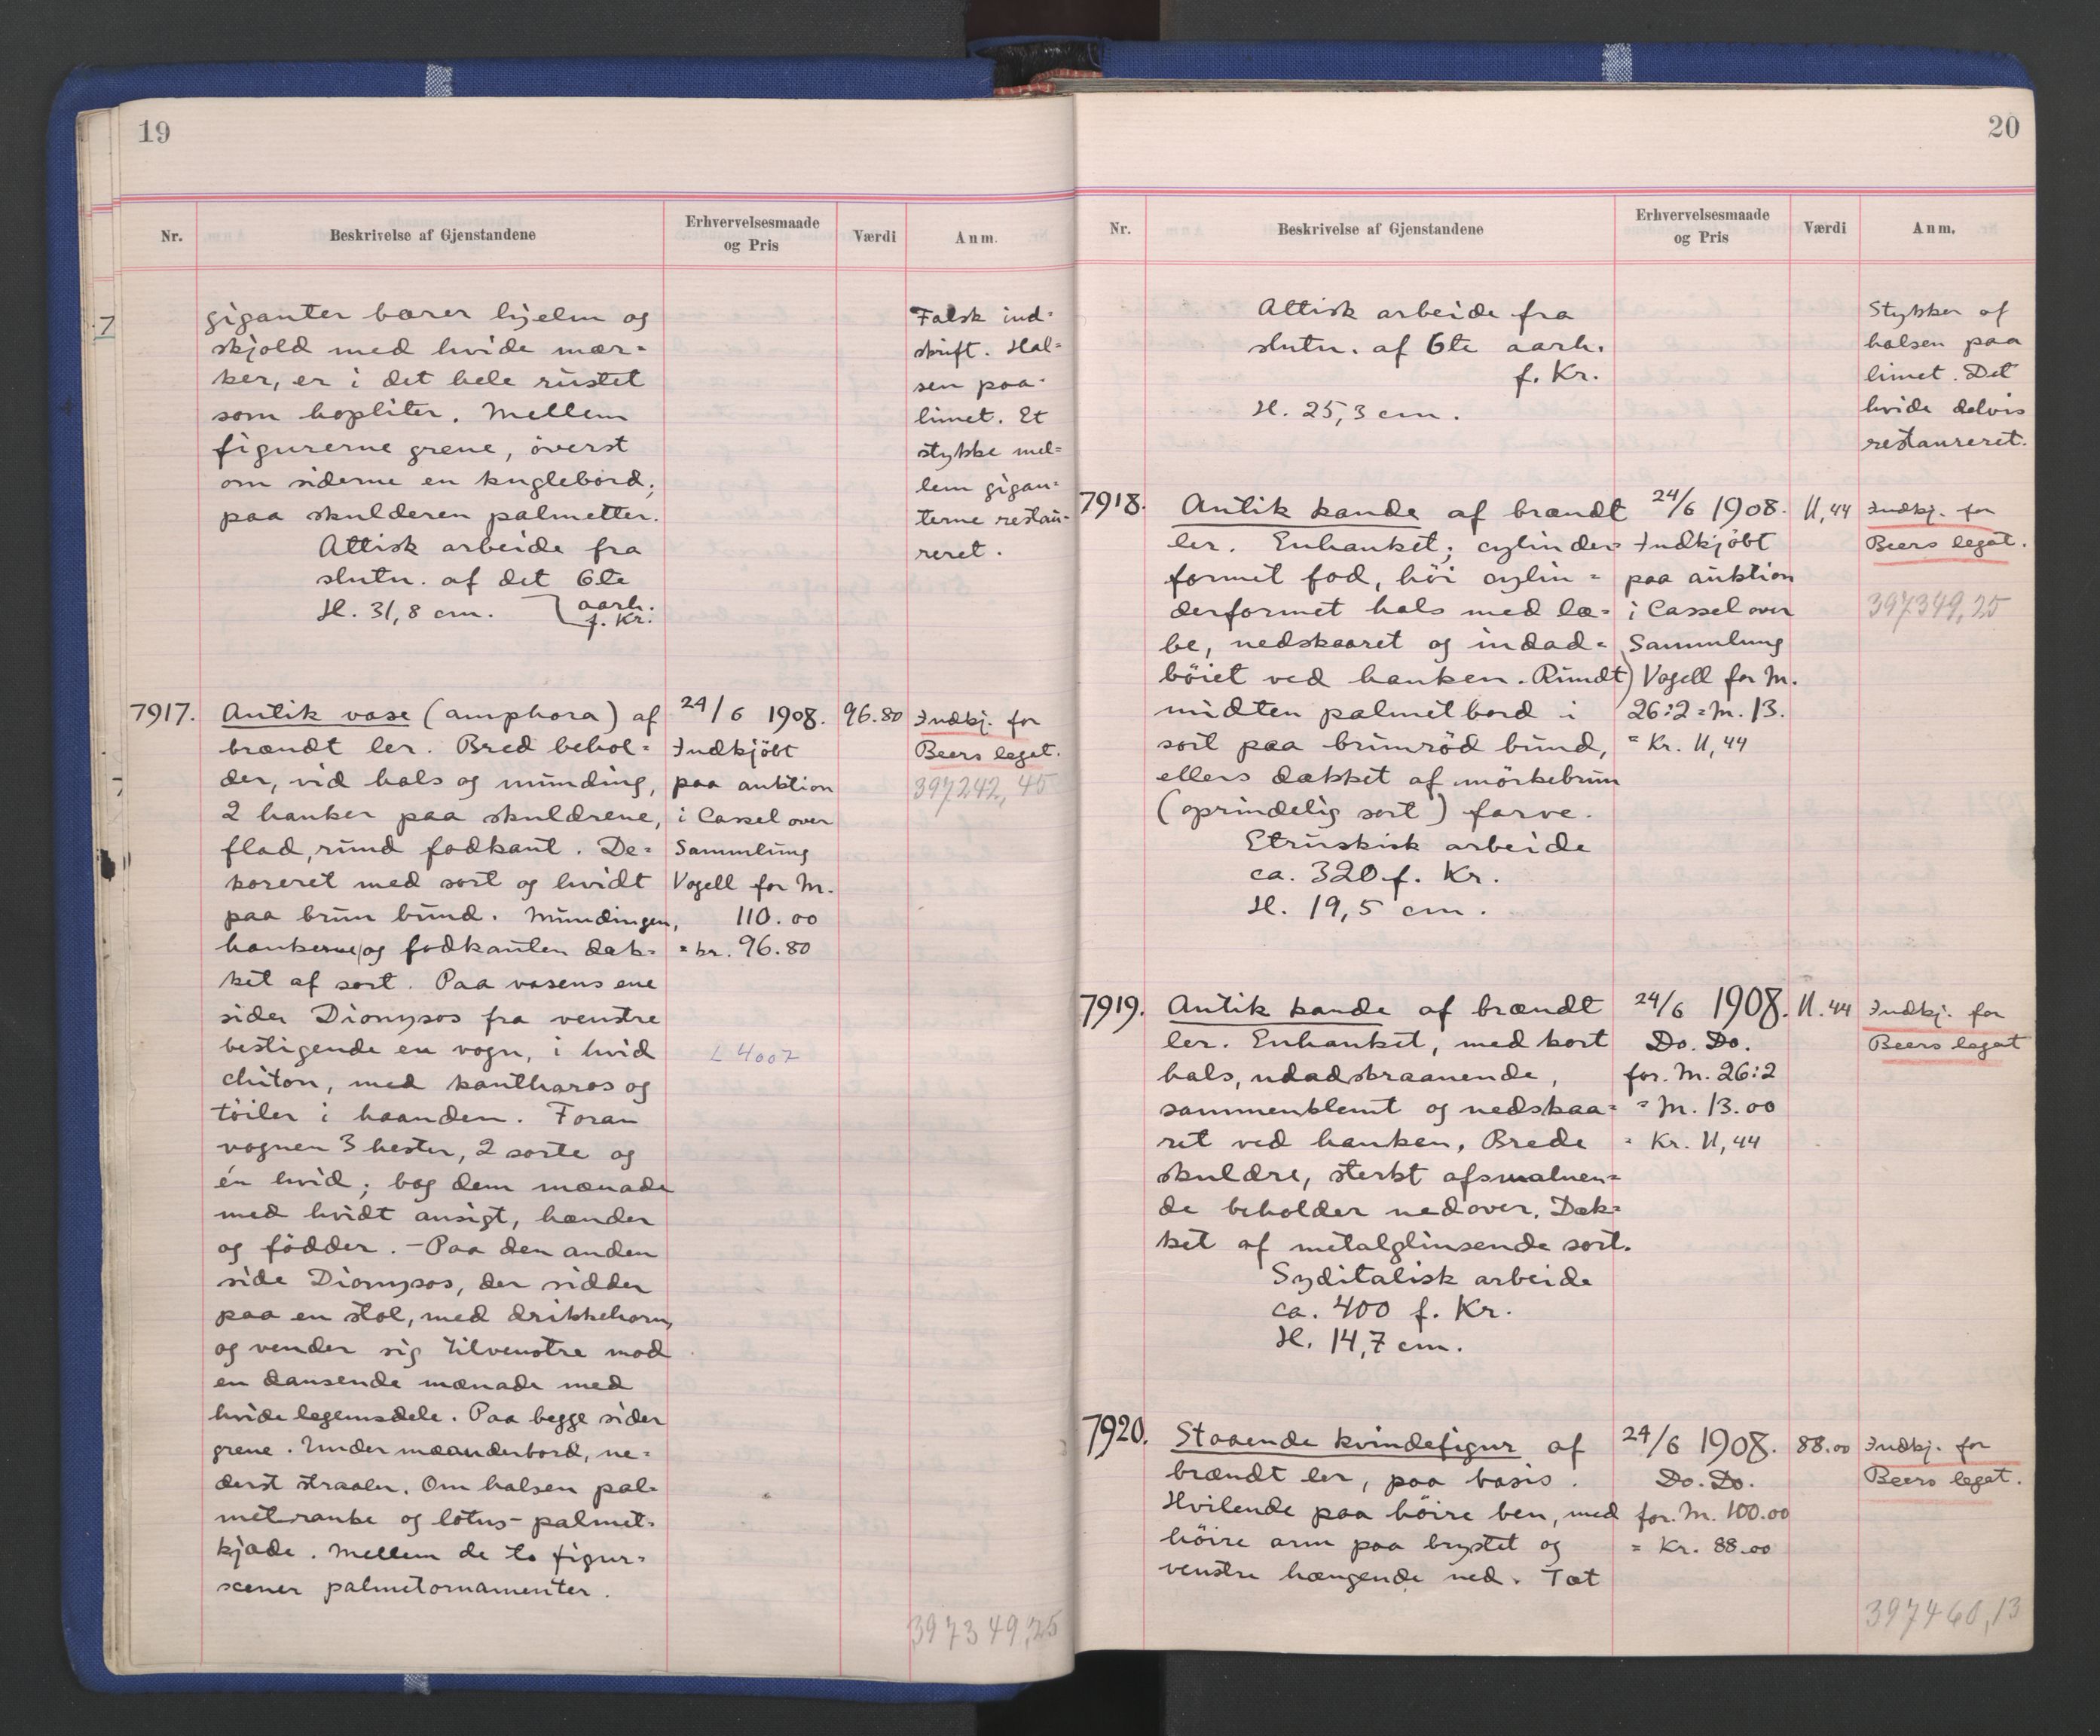 19
Nr.
Beskrivelse af Gjenstandene
Erhvervelsesmaade
og Pris
Værdi
Anm.
7
giganter bærer hjelm og
skjold med hvide mær-
ker, er i det hele rustet
som hopliter. Mellem
figurerne grene, överst
om siderne en kuglebord;
paa skulderen palmetter.
Attisk arbeide fra
slutn. af det 6te
aarh.
f. Kr.
H. 31,8 cm.
Falsk ind-
skrift. Hal-
sen paa-
limet. Et
stykke mel-
lem gigan-
terne restau-
reret.
7917.
Antik vase (amphora) af
brændt ler. Bred behol-
der, vid hals og munding,
2 hanker paa skuldrene,
flad, rund fodkant. De-
koreret med sort og hvidt
paa brun bund. Mundingen,
hankerne og fodkanten dæk-
ket af sort. Paa vasens ene
sider Dionysos fra venstre
bestigende en vogn, i hvid
chiton, med kantharos og
töiler i haanden. Foran
vognen 3 hester, 2 sorte og
én hvid; bag dem mænade
med hvidt ansigt, hænder
og födder. – Paa den anden
side Dionysos, der sidder
paa en stol, med drikkehorn,
og vender sig tilvenstre mod
en dansende mænade med
hvide legemsdele. Paa begge sider
grene. Under mæanderbord, ne-
derst straaler. Om halsen pal-
metranke og lotus-palmet-
kjæde. Mellem de to figur-
scener palmetornamenter.
24/6 1908.
Indkjöbt
paa auktion
i Cassel over
Sammlung
Vogell for M.
110.00
= kr. 96.80
L 4007
96.80
Indkj. for
Beers legat.
397242,45
397349,25
20
Nr.
Beskrivelse af Gjenstandene
Erhvervelsesmaade
og Pris
Værdi
Anm.
Attisk arbeide fra
slutn. af 6te aarh.
f. Kr.
H. 25,3 cm.
Stykker af
halsen paa
limet. Det
hvide delvis
restaureret.
7918.
Antik kande af brændt
ler. Enhanket; cylinder-
formet fod, höi cylin-
derformet hals med læ-
be, nedskaaret og indad-
böiet ved hanken. Rundt
midten palmetbord i
sort paa brunröd bund,
ellers dækket af mörkebrun
(oprindelig sort) farve.
Etruskisk arbeide
ca. 320 f. Kr.
H. 19,5 cm.
24/6 1908.
Indkjöbt
paa auktion
i Cassel over
Sammlung
Vogell for M.
26:2 = M. 13.
= Kr. 11,44
11,44
Indkj. for
Beers legat.
397349,25
7919.
Antik kande af brændt
ler. Enhanket, med kort
hals, udadskraanende,
sammenklemt og nedskaa-
ret ved hanken. Brede
skuldre, sterkt afsmalnen-
de beholder nedover. Dæk-
ket af metalglinsende sort.
Syditalisk arbeide
ca. 400 f. Kr.
H. 14,7 cm.
24/6 1908.
Do. Do.
for. M. 26:2
= M. 13.00
= Kr. 11,44
11.44
Indkj. for
Beers legat
7920.
Staaende kvindefigur af
brændt ler, paa basis.
Hvilende paa höire ben, med
höire arm paa brystet og
venstre hængende ned. Tæt
24/6 1908.
Do. Do.
for. M. 100.00
= Kr. 88.00
88.00
Indkj. for
Beers legat.
397460,13